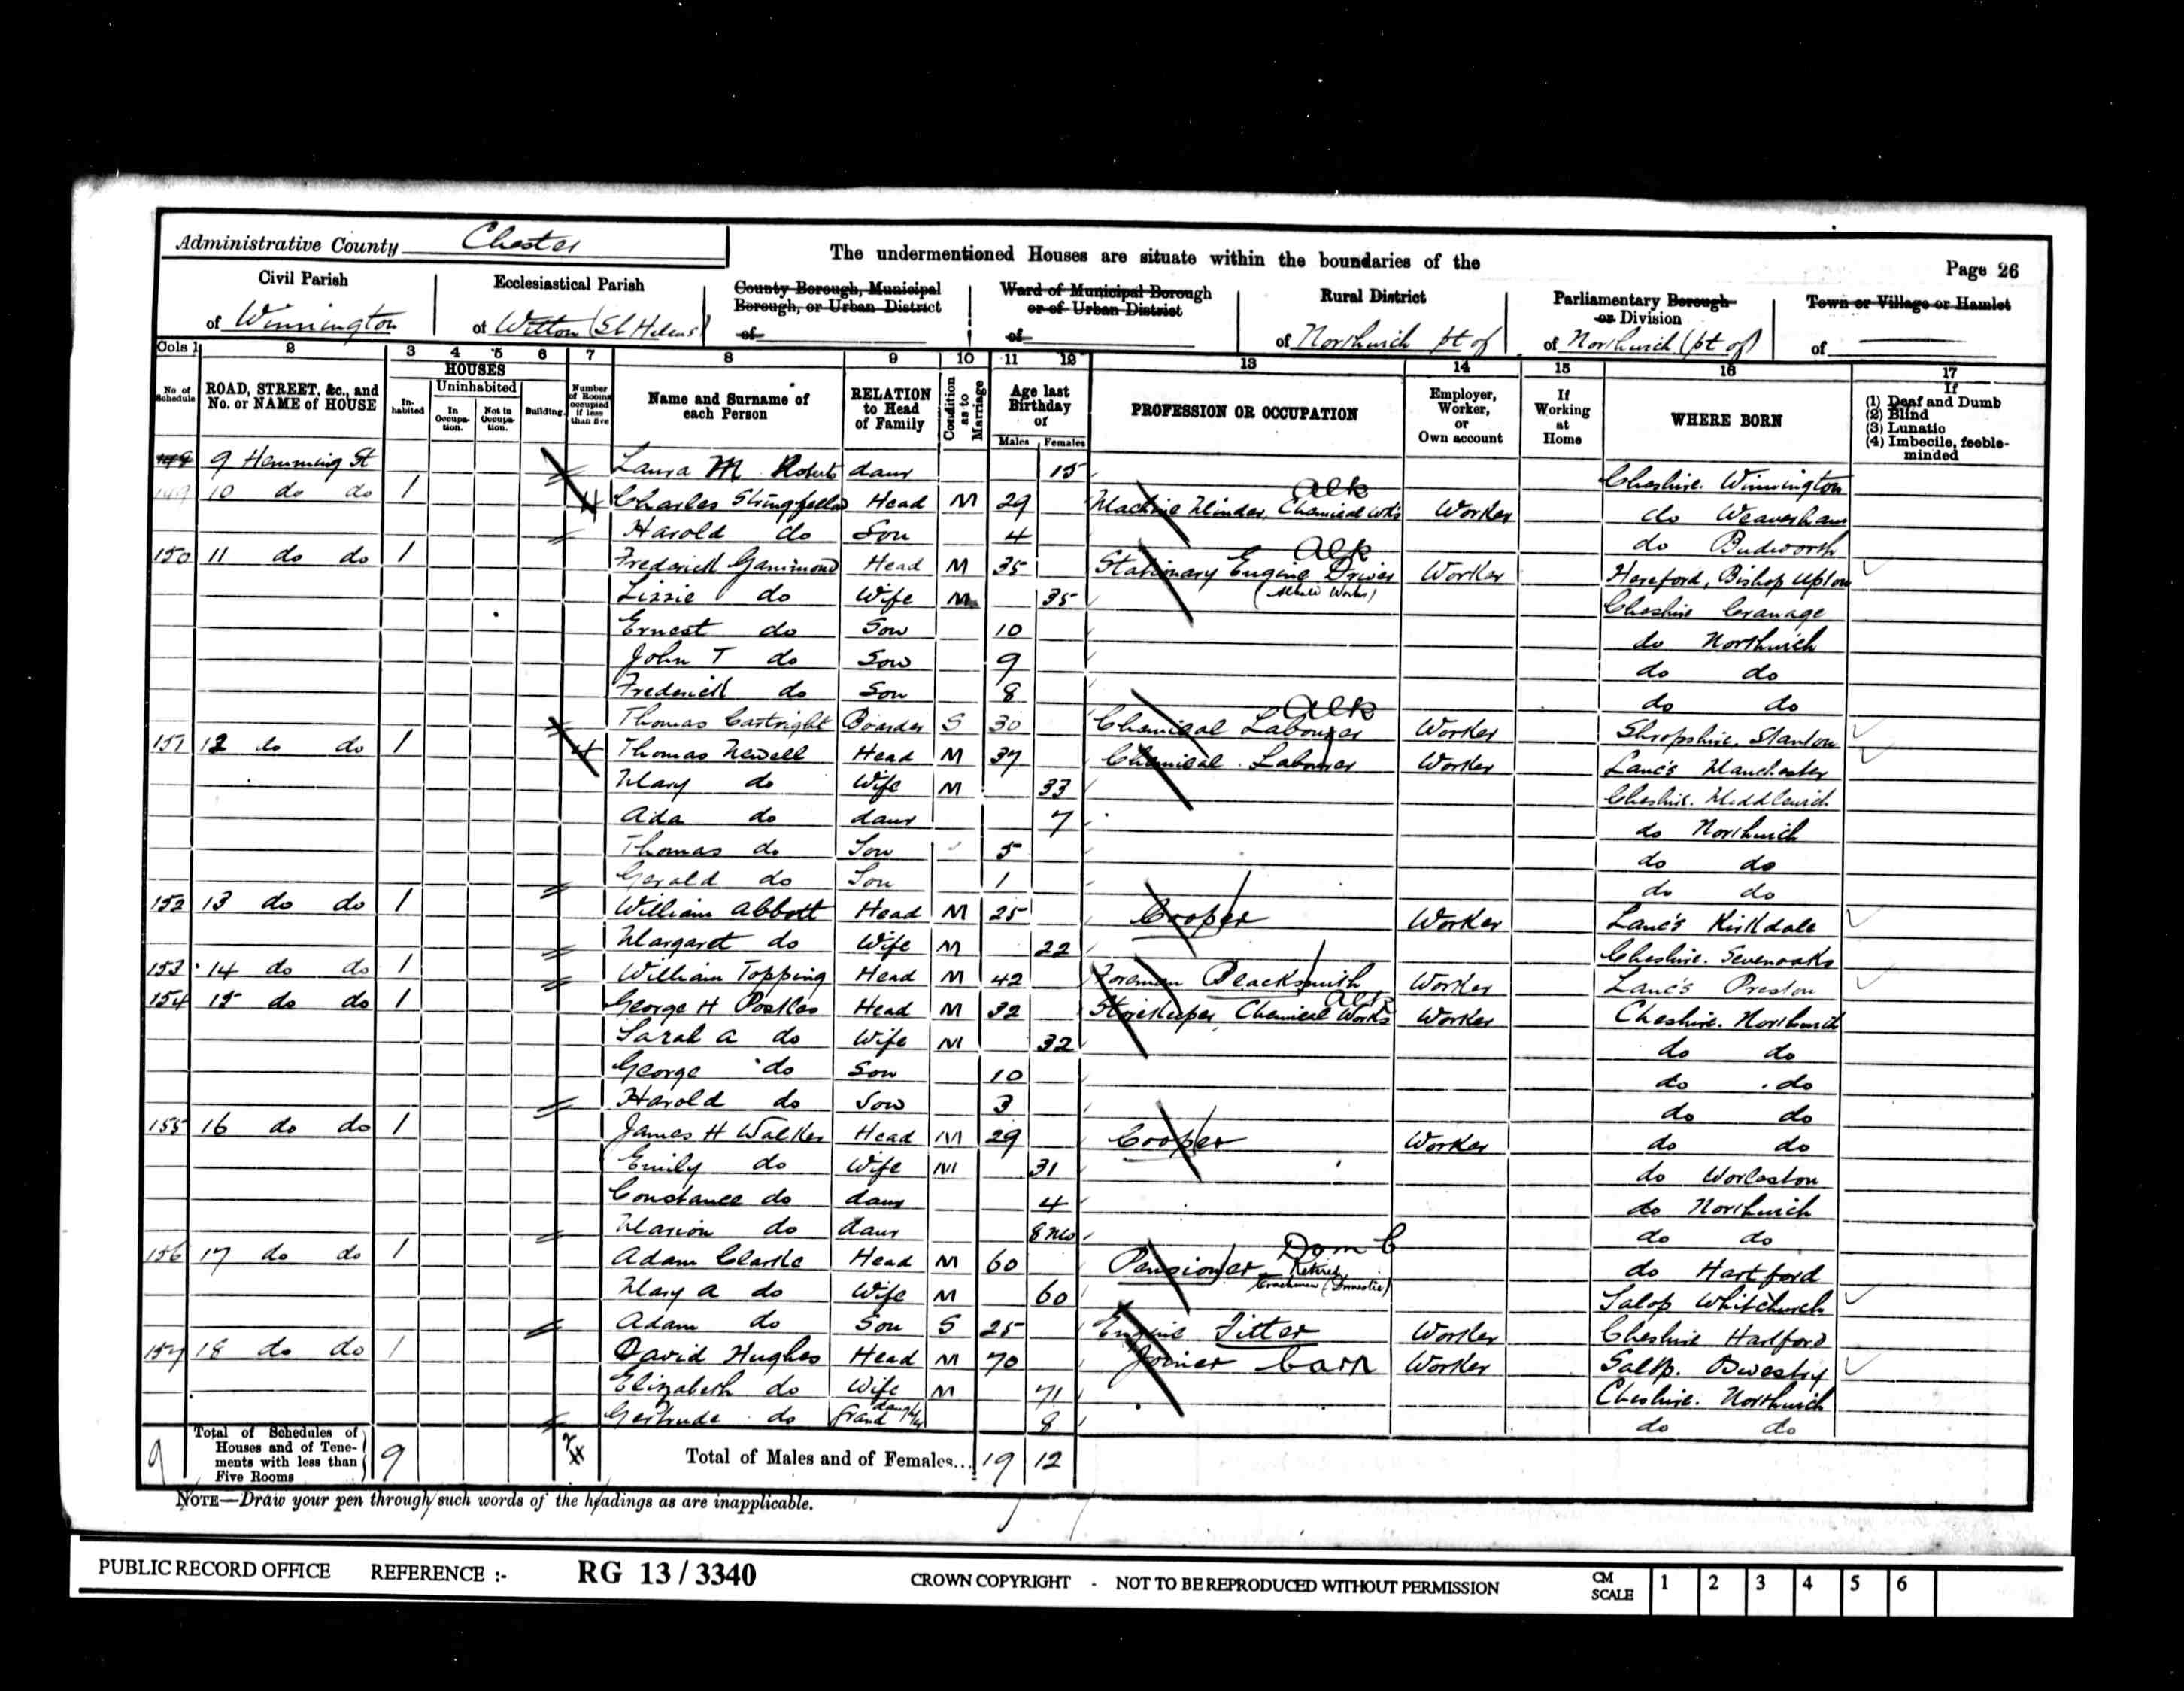 Administrative County Chester
The undermentioned Houses are situate within the boundaries of the
Page 26
Civil Parish
of Winnington
Ecclesiastical Parish
of Witton (St Helens)
County Borough, Municipal
Borough, or Urban District
of
Ward of Municipal Borough
or of Urban District
of
Rural District
of Northwich pt of
Parliamentary Borough
or Division
of Northwich (pt of)
Town or Village or Hamlet
of
Cols 1 2 3 4 5 6 7 8 9 10 11 12 13 14 15 16 17
No of Schedule
ROAD, STREET, &c., and No. or NAME of HOUSE
HOUSES
Inhabited
Uninhabited
In Occupation.
Not in Occupation.
Building.
Number of Rooms occupied if less than five
Name and Surname of each Person
RELATION to Head of Family
Condition as to Marriage
Age last Birthday of
Males Females
PROFESSION OR OCCUPATION
Employer, Worker, or Own account
If Working at Home
WHERE BORN
If
(1) Deaf and Dumb
(2) Blind
(3) Lunatic
(4) Imbecile, feeble-minded
148 9 Hemming St Laura M Roberts daur 15 Cheshire. Winnington
149 10 do do 1 4 Charles Stringfellow Head M 29 Machine Minder, Chemical Wks Alk Worker do Weaverham
Harold do Son 4 do Budworth
150 11 do do 1 Frederick Gammond Head M 35 Stationary Engine Driver Alk Worker Hereford, Bishop Upton
Lizzie do Wife M 35 (Alkali Works) Cheshire Cranage
Ernest do Son 10 do Northwich
John T do Son 9 do do
Frederick do Son 8 do do
Thomas Cartwright Boarder S 30 Chemical Labourer Alk Worker Shropshire. Stanton
151 12 do do 1 4 Thomas Newell Head M 37 Chemical Labourer Worker Lanc's Manchester
Mary do Wife M 33 Cheshire. Middlewich
Ada do daur 7 do Northwich
Thomas do Son 5 do do
Gerald do Son 1 do do
152 13 do do 1 William Abbott Head M 25 Cooper Worker Lanc's Kirkdale
Margaret do Wife M 22 Cheshire. Sevenoaks
153 14 do do 1 William Topping Head M 42 Foreman Blacksmith Worker Lanc's Preston
154 15 do do 1 George H Postles Head M 32 Storekeeper, Chemical Works Alk Worker Cheshire. Northwich
Sarah A do Wife M 32 do do
George do Son 10 do do
Harold do Son 3 do do
155 16 do do 1 James H Walker Head M 29 Cooper Worker do do
Emily do Wife M 31 do Worleston
Constance do daur 4 do Northwich
Marion do daur 8 Mo do do
156 17 do do 1 Adam Clarke Head M 60 Pensioner Retired Coachman (Domestic) Dom C do Hartford
Mary A do Wife M 60 Salop Whitchurch
Adam do Son S 25 Engine Fitter Worker Cheshire Hartford
157 18 do do 1 David Hughes Head M 70 Joiner Carp Worker Salop. Oswestry
Elizabeth do Wife M 71 Cheshire. Northwich
Gertrude do Grand daughter 8 do do
9 Total of Schedules of Houses and of Tenements with less than Five Rooms 9 2 Total of Males and of Females... 19 12
NOTE—Draw your pen through such words of the headings as are inapplicable.
PUBLIC RECORD OFFICE REFERENCE :- RG 13 / 3340 CROWN COPYRIGHT - NOT TO BE REPRODUCED WITHOUT PERMISSION CM SCALE 1 2 3 4 5 6